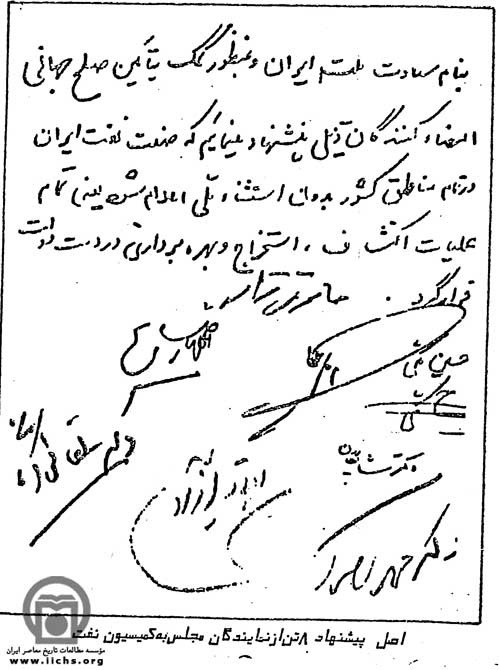 بنام سعادت ملت ایران و بمنظور کمک بتأمین صلح جهانی
امضاء کنندگان ذیل پیشنهاد مینمائیم که صنعت نفت ایران
در تمام مناطق کشور بدون استثناء ملی اعلام شود یعنی تمام
عملیات اکتشاف، استخراج و بهره برداری در دست دولت
قرار گیرد.
حائری زاده
اللهیار صالح
حسین مکی
دکتر بقائی
دکتر شایگان
آزاد
دکتر مصدق
اصل پیشنهاد ۸ تن از نمایندگان مجلس به کمیسیون نفت
مؤسسه مطالعات تاریخ معاصر ایران
www.iichs.org